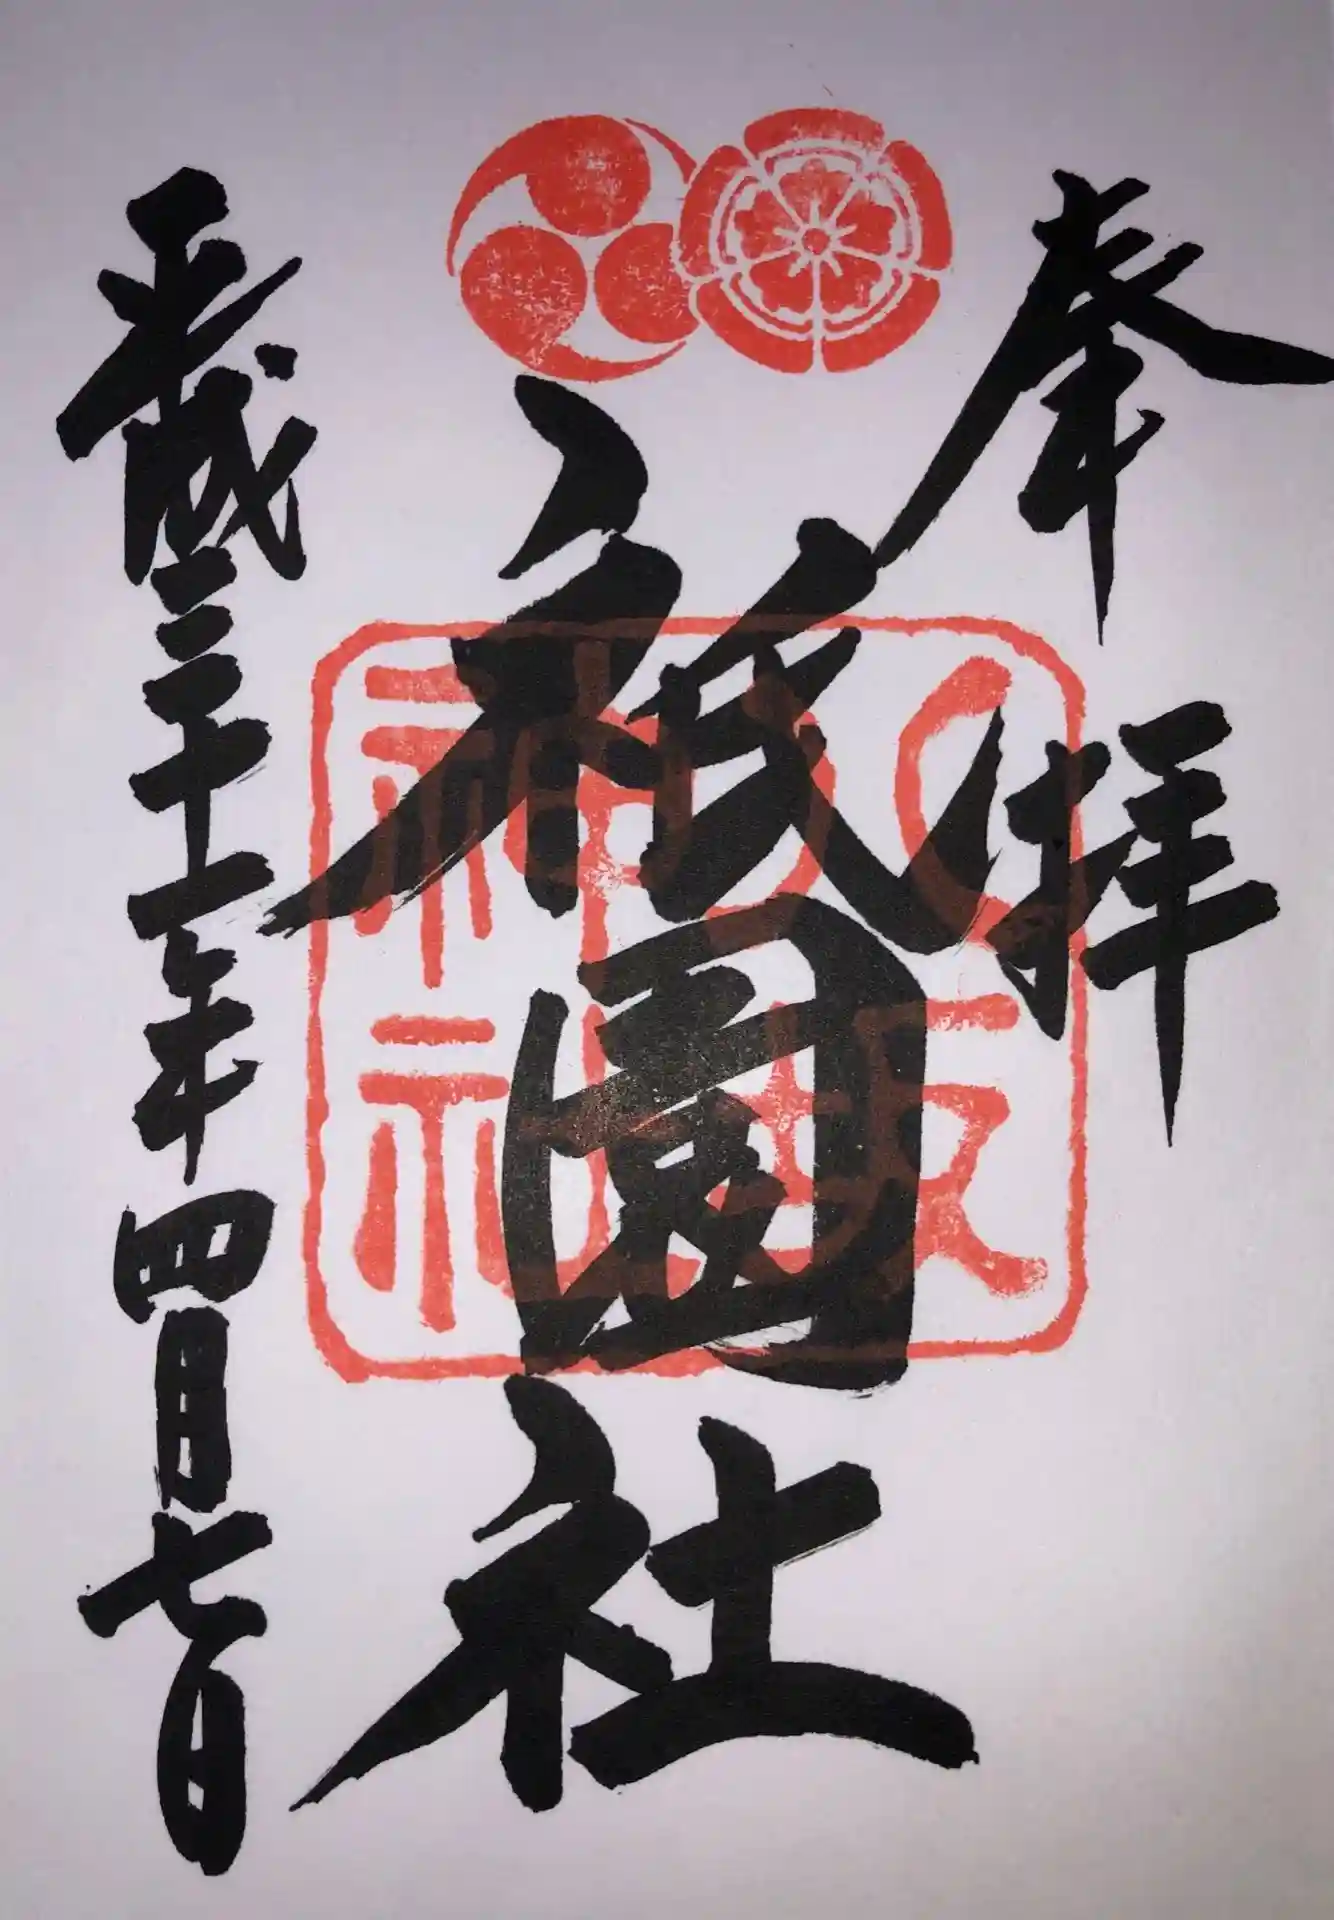 奉拝
祇園社
平成三十一年四月七日
八坂
神社